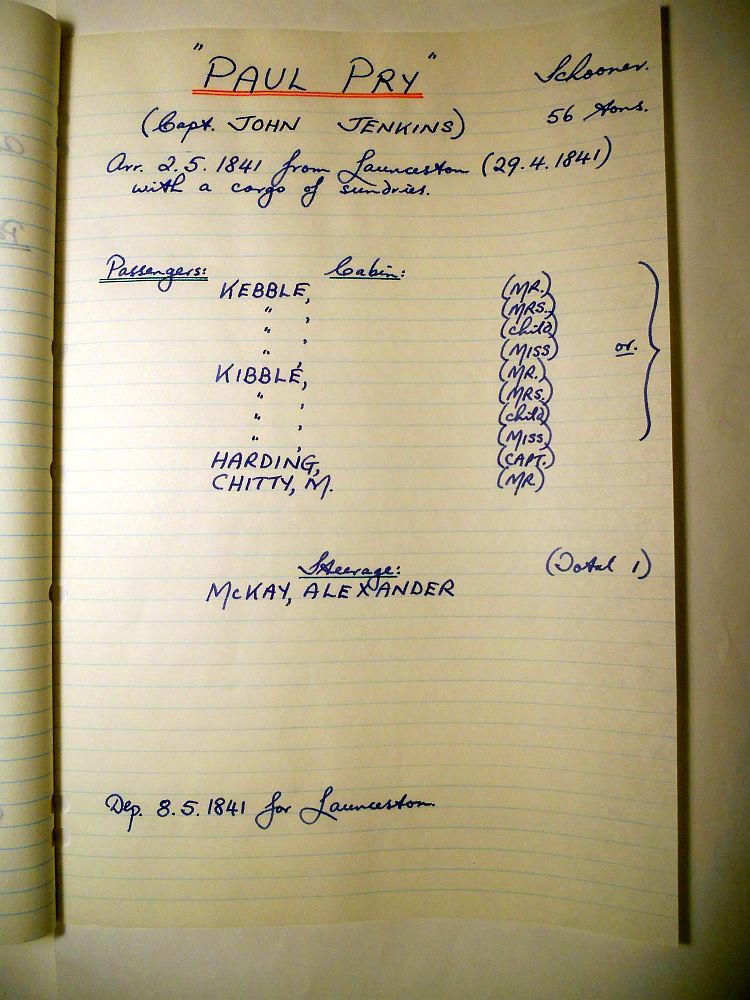 "PAUL PRY" Schooner.
(Capt. JOHN JENKINS) 56 Tons.
Arr. 2.5.1841 from Launceston (29.4.1841)
with a cargo of sundries.
Passengers: Cabin:
KEBBLE, (MR.)
" , (MRS.)
" , (Child)
" , (MISS) or.
KIBBLE, (MR.)
" , (MRS.)
" , (Child)
" , (MISS)
HARDING, (CAPT.)
CHITTY, M. (MR)
Steerage: (Total 1)
McKAY, ALEXANDER
Dep. 8.5.1841 for Launceston.